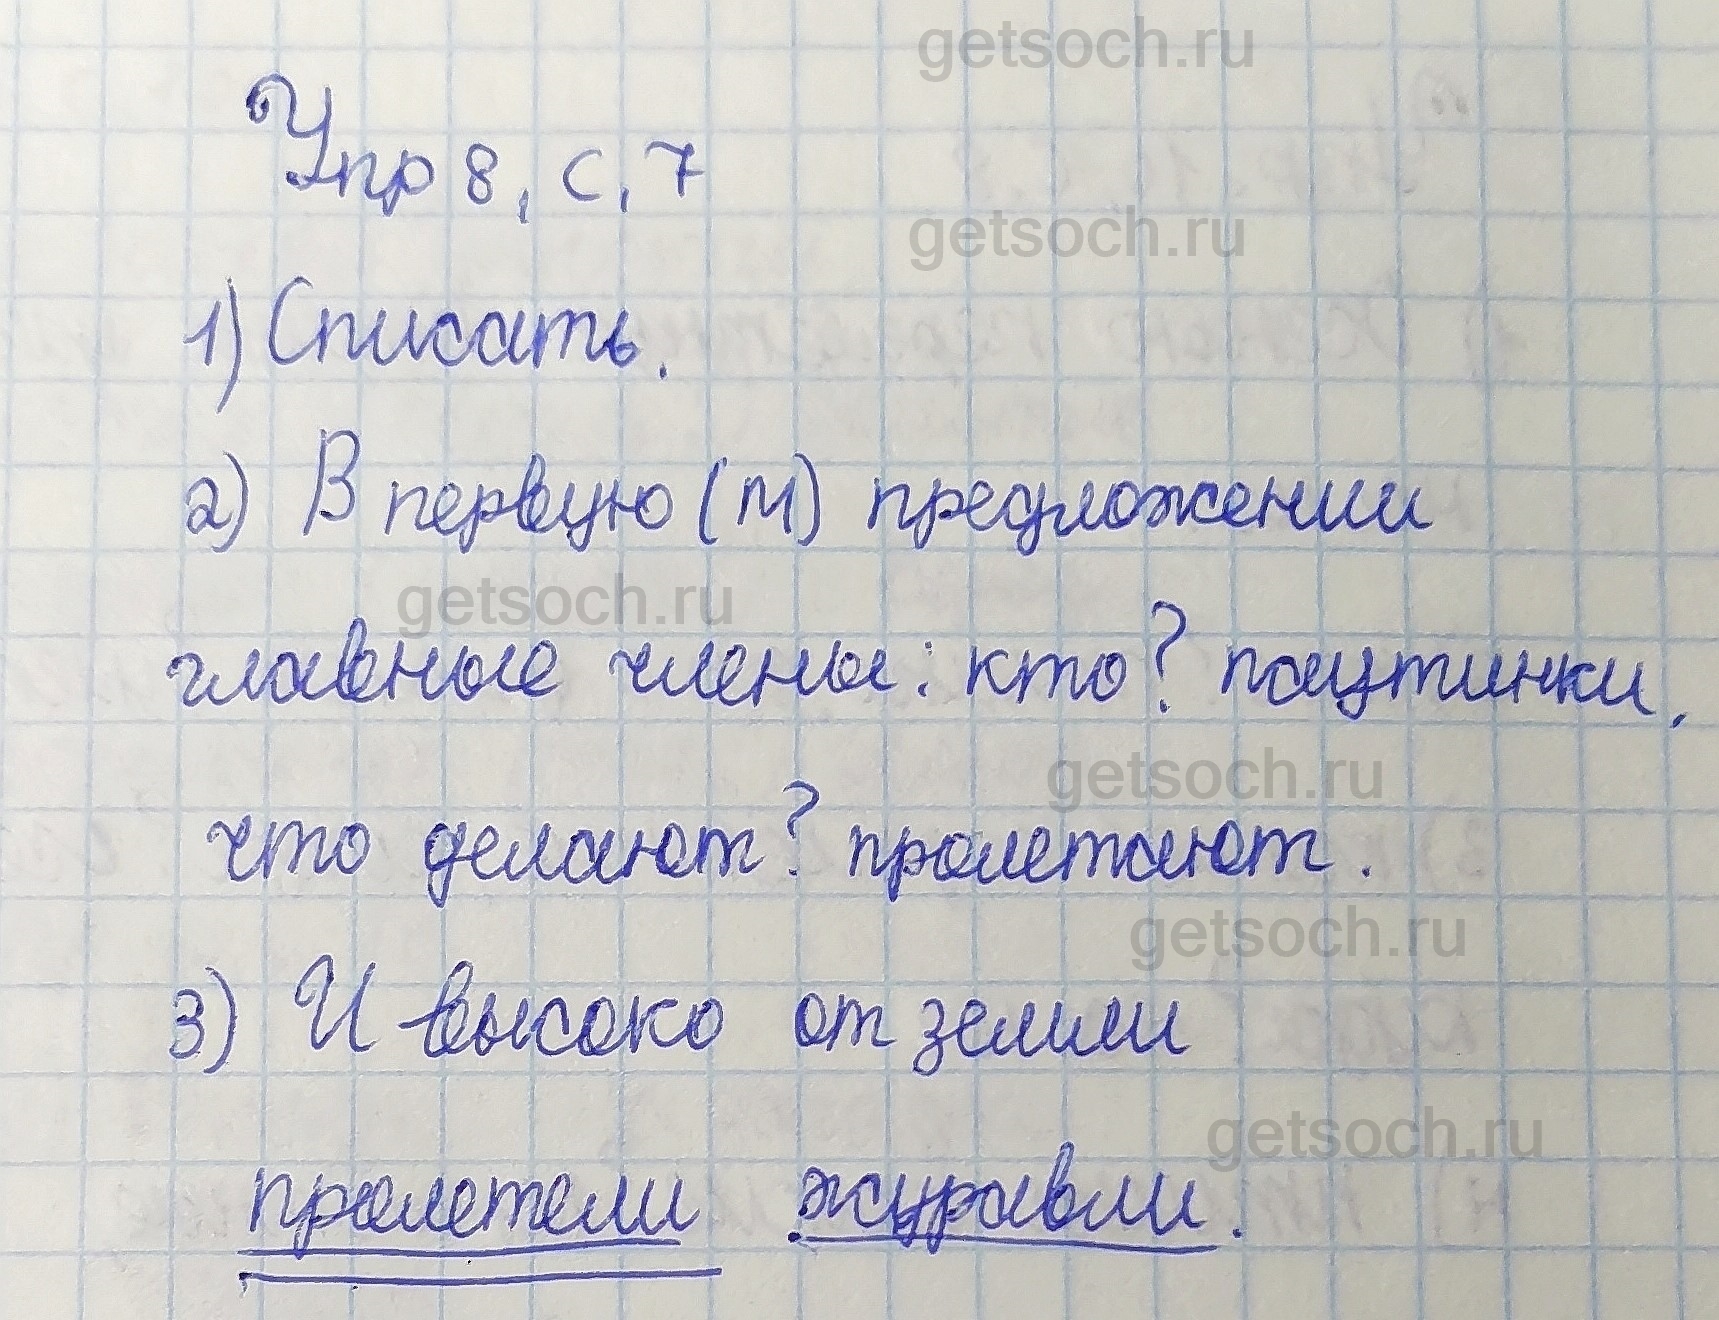 getsoch.ru
Упр 8, с, 7
getsoch.ru
1) Списать.
2) В первую (м) предложении
getsoch.ru
главные члены: кто? паутинки,
getsoch.ru
что делают? пролетают.
getsoch.ru
3) И высоко от земли
getsoch.ru
пролетели журавли.